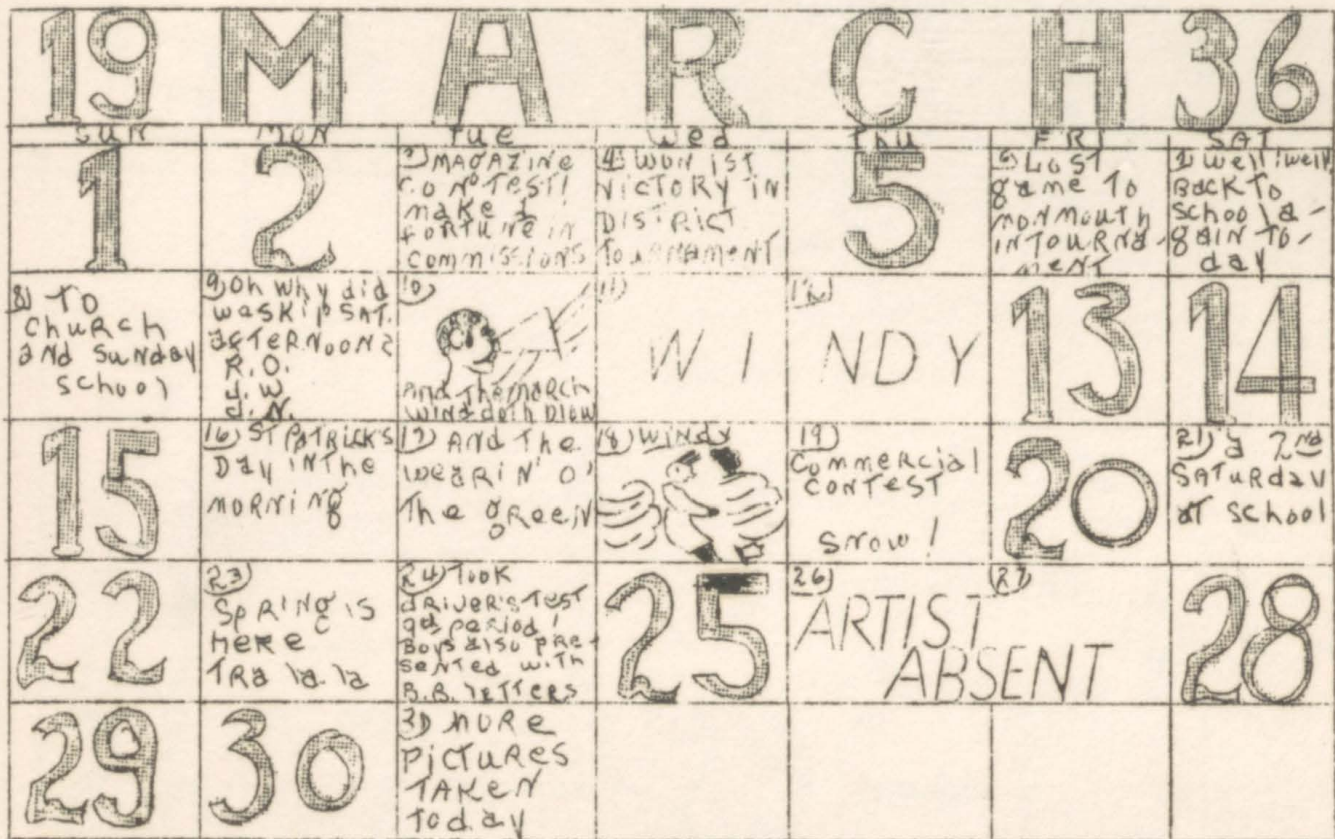 19 MARCH 36
SUN MON TUE WED THU FRI SAT
1
2
3) MAGAZINE
CONTEST!
make a
FORTUNE IN
COMMISSIONS
4) WON 1ST
VICTORY IN
DISTRICT
TOURNAMENT
5
6) LOST
game TO
MONMOUTH
IN TOURNA-
MENT
Well! well
BACK TO
SCHOOL A-
GAIN TO-
day
8) TO
CHURCH
and Sunday
School
9) Oh why did
we skip SAT.
AFTERNOON?
R.O.
J.W.
J.N.
10)
And the MARCH
wind doth blow
11)
12)
WINDY
13
14
15
16) ST PATRICK'S
DAY IN THE
MORNING
17) AND The
WEARIN' O'
The GREEN
18) WINDY
19)
COMMERCIAL
CONTEST
SNOW!
20
21) a 2nd
SATURDAY
AT SCHOOL
22
23)
SPRING IS
HERE
TRA la. la
24) TOOK
DRIVER'S TEST
period!
Boys also pre-
sented with
B.B. letters
25
26)
27)
ARTIST
ABSENT
28
29
30
31) MORE
PICTURES
TAKEN
Today